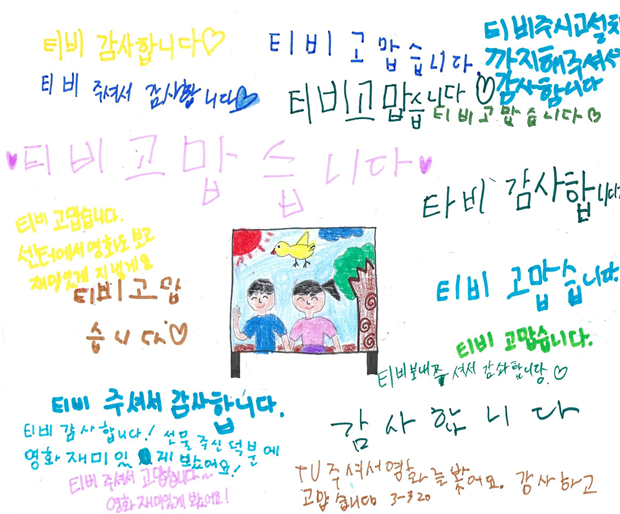 티비 감사합니다♡
티비 고맙습니다.
티비주시고설치
까지해주셔서
감사합니다
티비 주셔서 감사합니다♡
티비고맙습니다♡
티비고맙습니다♡
♥티비고맙습니다♥
타비 감사합니다.
티비 고맙습니다.
센터에서 영화도 보고
재미있게 지낼게요
티비고맙
습니다♡
티비 고맙습니다.
티비 고맙습니다.
티비보내주셔서 감사합니다.♡
티비 주셔서 감사합니다.
감사합니다
티비 감사합니다! 선물 주신 덕분에
영화 재미있게 봤어요!
티비 주셔서 고맙습니다
영화 재미있게 봤어요!
TV 주셔서 영화를 봤어요. 감사하고
고맙습니다